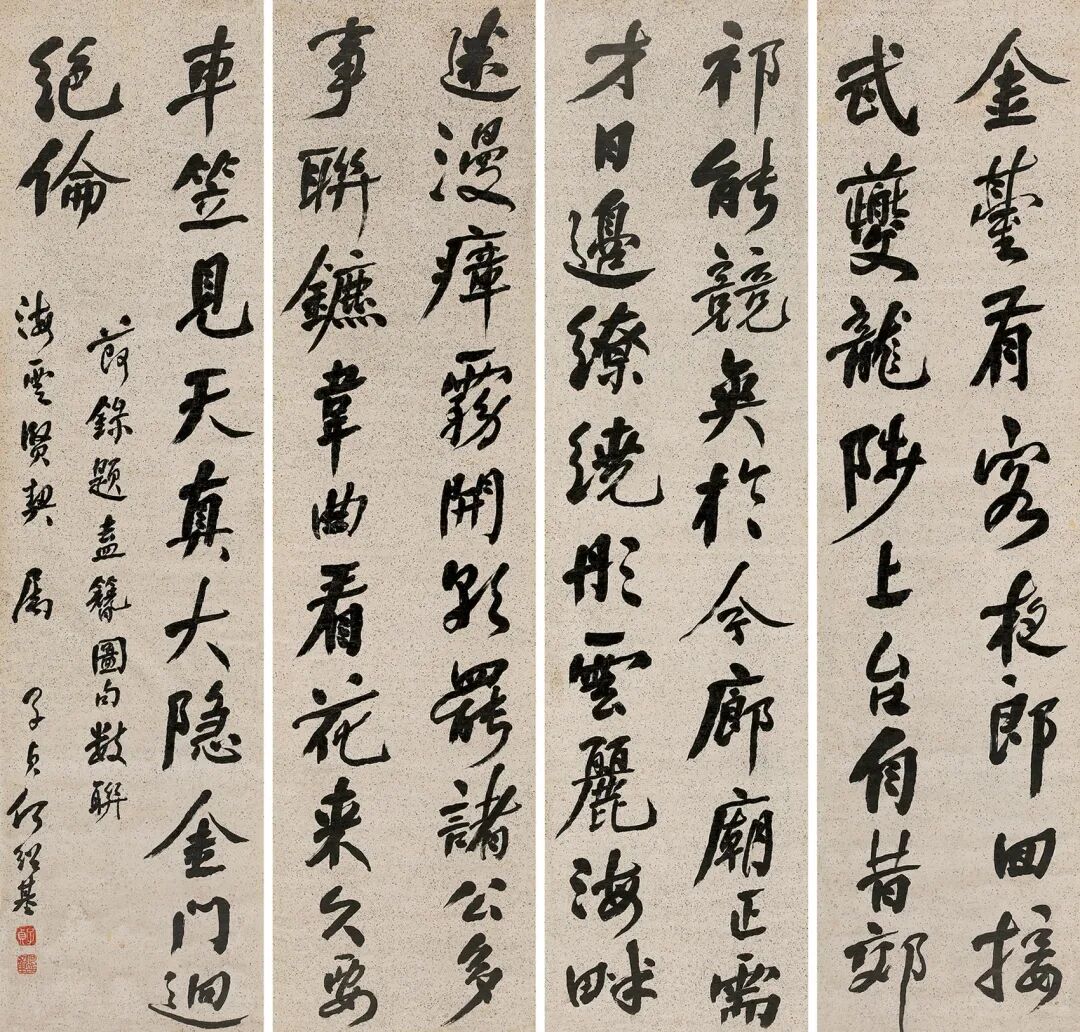 金臺有客夜郎回接
武夔龍陟上台自昔郊
祁能競爽於今廊廟正需
才日邊繚繞彤雲麗海畔
迷漫瘴霧開朝罷諸公多
事聯鑣韋曲看花來久要
車笠見天真大隱金門迥
絕倫
節錄題盍簪圖句數聯
海雲賢契屬 子貞何紹基